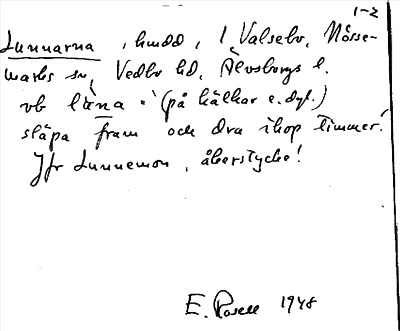 1-2
Lunnarna, hmdd, i Valsebo, Nösse-
marks sn, Vedbo hd, Älvsborgs l.
vb läna: (på kälkar e. dyl.)
släpa fram och dra ihop timmer!
Jfr Lunnemon, åberstycke!
E. Rosell 1948